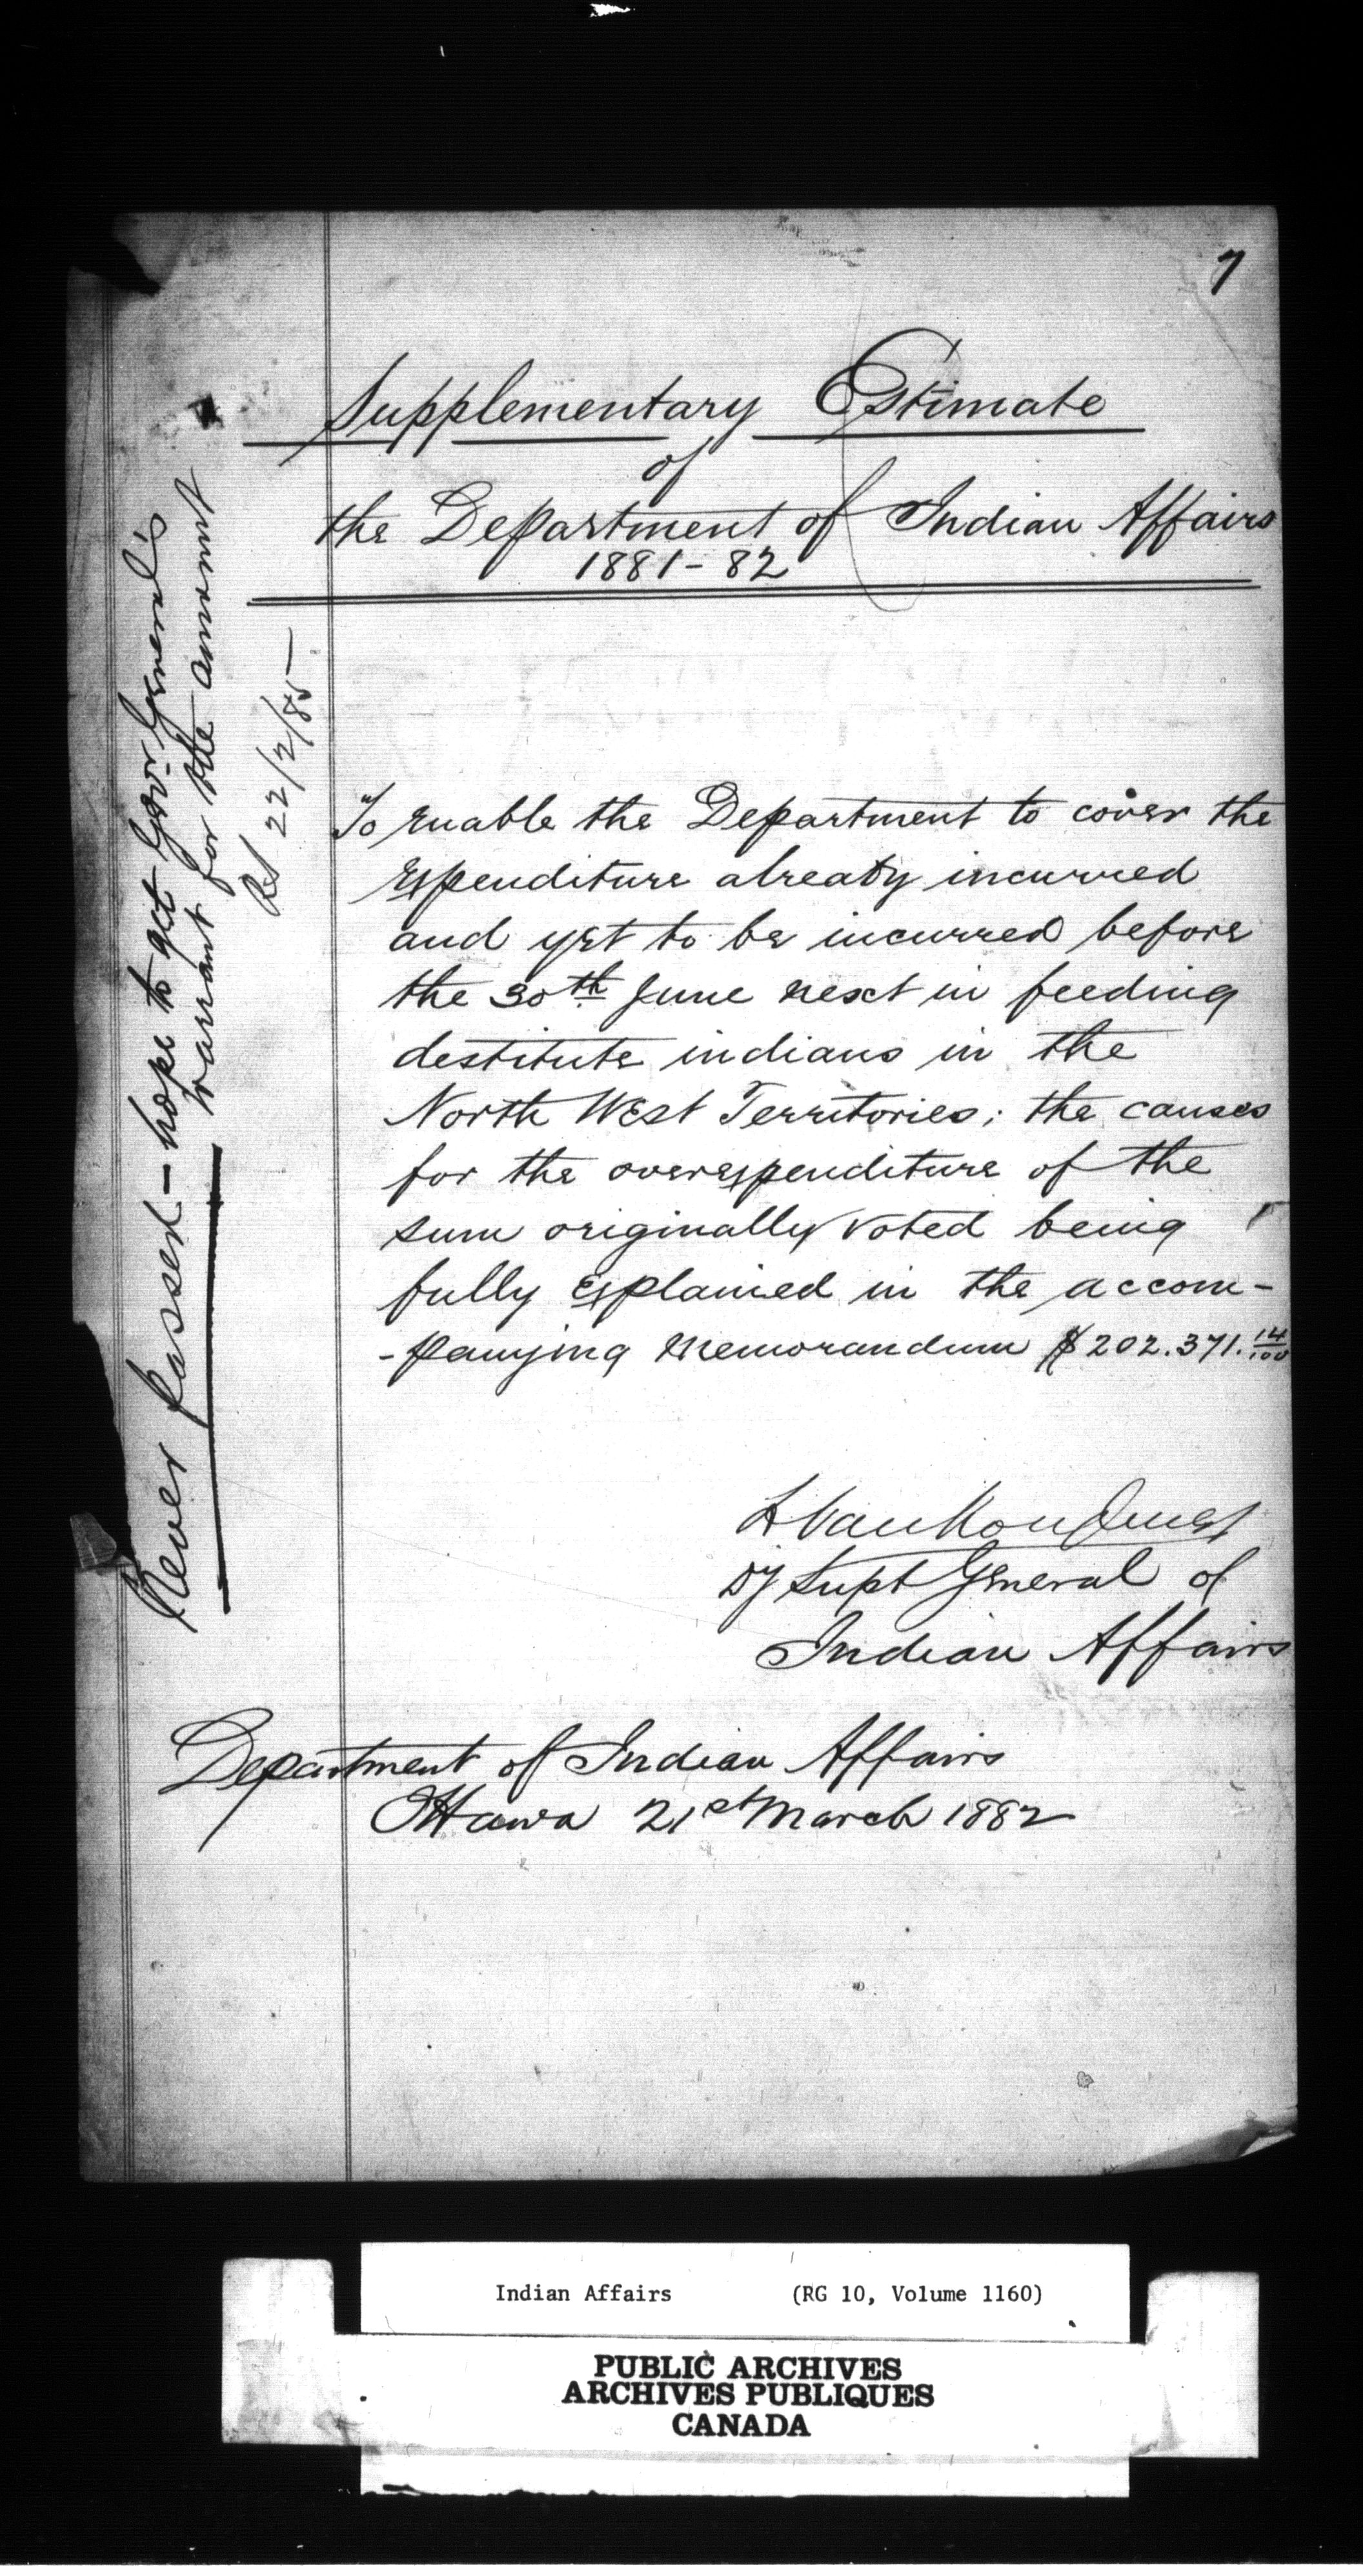 7
Supplementary Estimate
of
the Department of Indian Affairs
1881-82
To enable the Department to cover the
expenditure already incurred
and yet to be incurred before
the 30th June next in feeding
destitute indians in the
North West Territories; the causes
for the overexpenditure of the
sum originally voted being
fully explained in the accom-
-panying memorandum $202.371.14/100
L VanKoughnet
Dy Supt General of
Indian Affairs
Department of Indian Affairs
Ottawa 21st March 1882
Never passed - hope to get Govr General's
warrant for the amount
RS 22/2/85
Indian Affairs (RG 10, Volume 1160)
PUBLIC ARCHIVES
ARCHIVES PUBLIQUES
CANADA